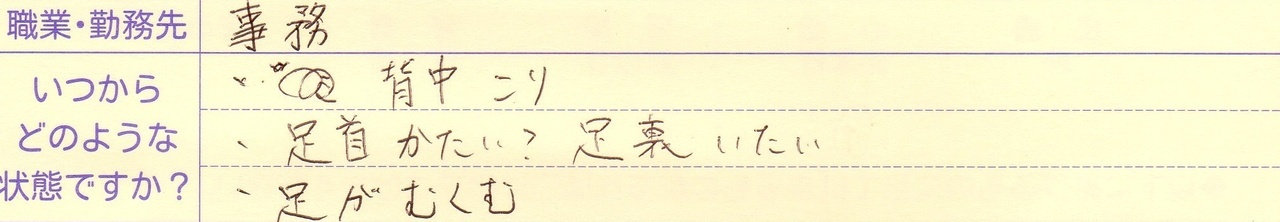 職業・勤務先 事務
いつから
どのような
状態ですか？
・ 背中 こり
・ 足首 かたい？ 足裏 いたい
・ 足が むくむ